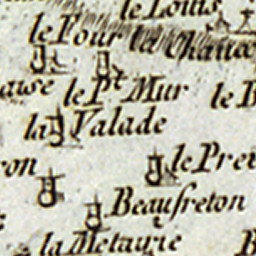 le Louis
le Four la Chauce
aise le Pt. Mur le B
la Valade
ron le Pre
Beaufreton
la Metayrie B